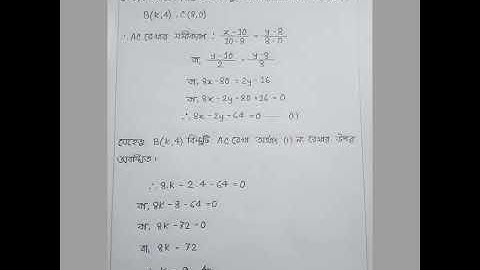 B(k,4) . C(8,0)
∴ AC রেখার সমীকরণ : x-10/10-8 = y-8/8-0
বা, y-10/2 = y-8/8
বা, 8x-80 = 2y-16
বা, 8x-2y-80+16 = 0
∴ 8x-2y-64 = 0 (1)
যেহেতু B(k,4) বিন্দুটি AC রেখা অর্থাৎ (1) নং রেখার উপর
অবস্থিত।
∴ 8.k - 2.4 - 64 = 0
বা, 8k - 8 - 64 = 0
বা, 8k - 72 = 0
বা, 8k = 72